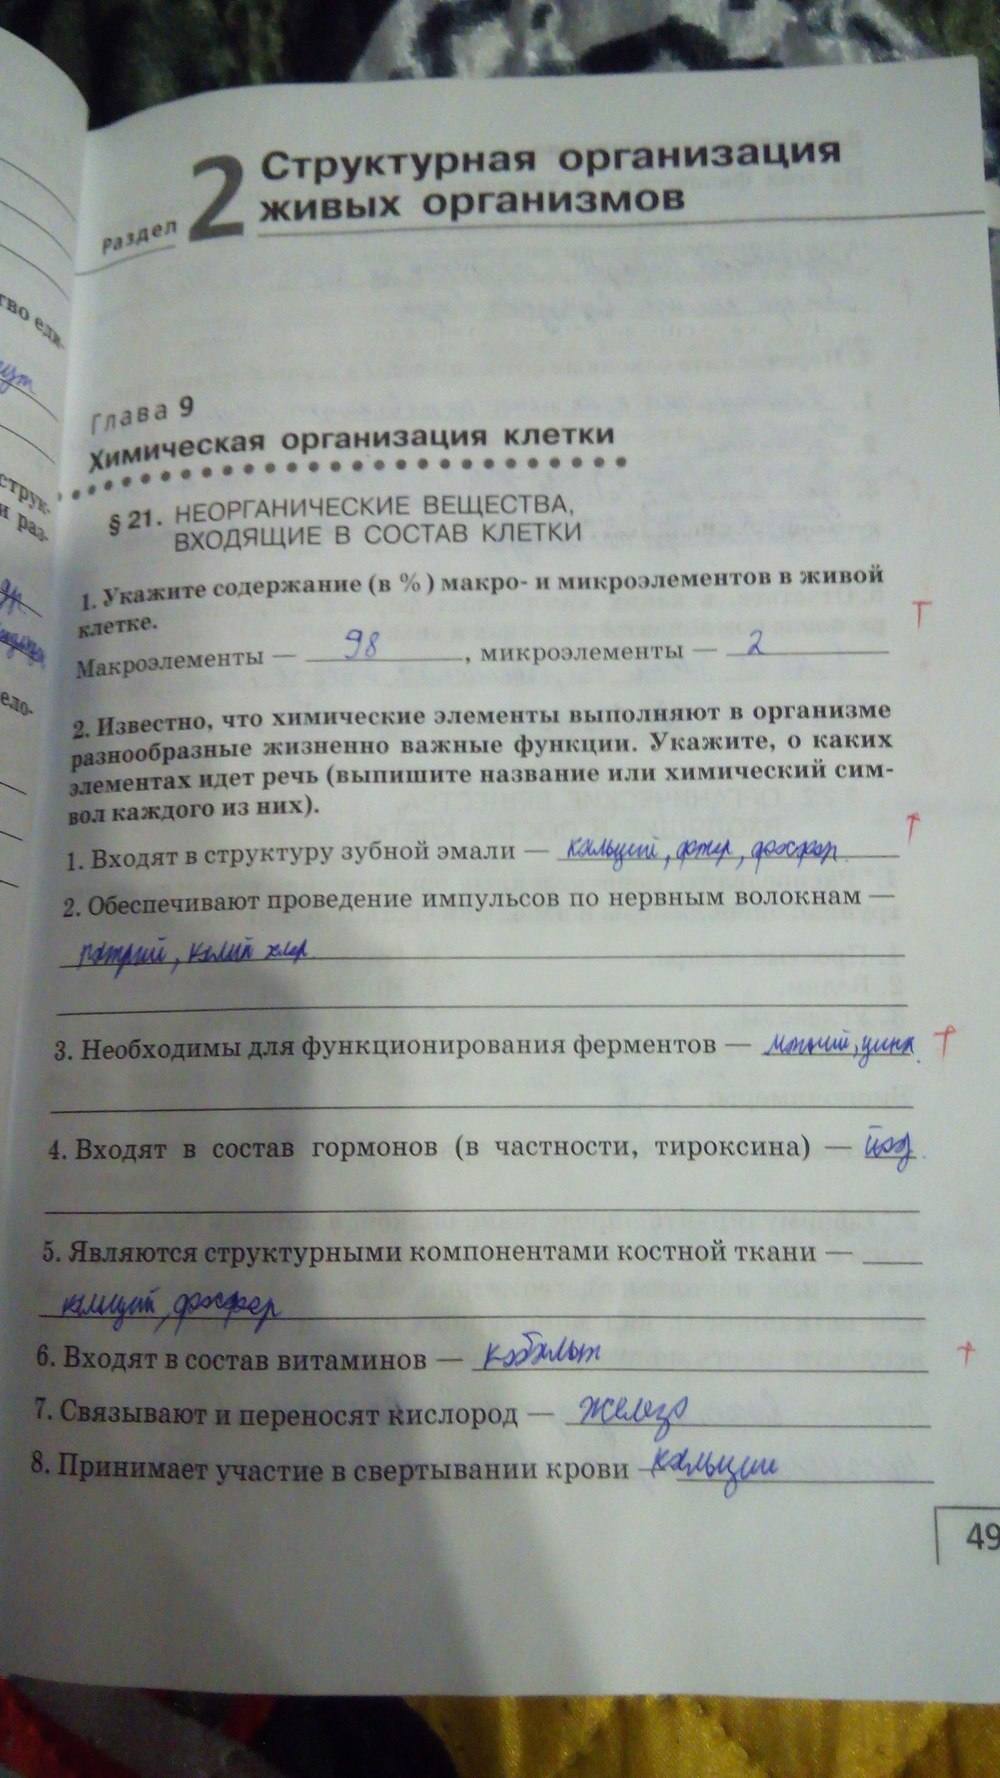 тво ели-
струк-
и раз-
ело-
Раздел 2 Структурная организация
живых организмов
Глава 9
Химическая организация клетки
§ 21. НЕОРГАНИЧЕСКИЕ ВЕЩЕСТВА,
ВХОДЯЩИЕ В СОСТАВ КЛЕТКИ
1. Укажите содержание (в %) макро- и микроэлементов в живой
клетке.
Макроэлементы — 98, микроэлементы — 2
2. Известно, что химические элементы выполняют в организме
разнообразные жизненно важные функции. Укажите, о каких
элементах идет речь (выпишите название или химический сим-
вол каждого из них).
1. Входят в структуру зубной эмали — кальций, фтор, фосфор
2. Обеспечивают проведение импульсов по нервным волокнам —
натрий, калий хлор
3. Необходимы для функционирования ферментов — магний, цинк
4. Входят в состав гормонов (в частности, тироксина) — йод
5. Являются структурными компонентами костной ткани —
кальций, фосфор
6. Входят в состав витаминов — кобальт
7. Связывают и переносят кислород — железо
8. Принимает участие в свертывании крови — кальции
49